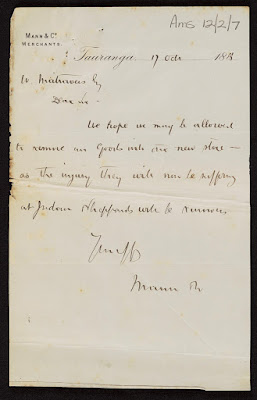 Ams 12/2/7
MANN & Co.
MERCHANTS.
Tauranga, 17 Octr 18
W.
Dear Sir
We hope we may be allowed
to remove our Goods into the new store —
as the injury they will now be suffering
at Jordan & Sheppards will be
Yours
Mann &